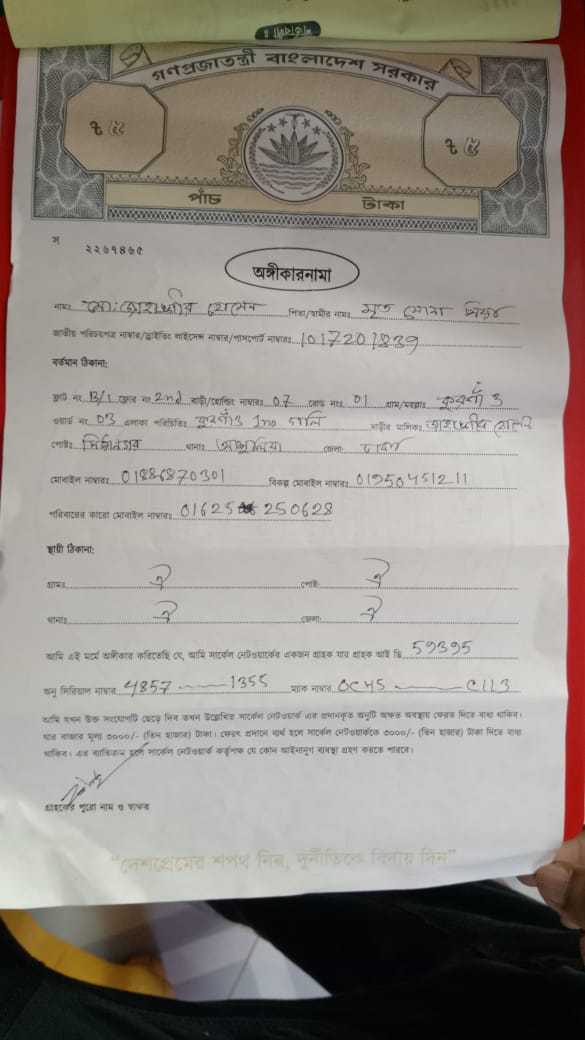 গণপ্রজাতন্ত্রী বাংলাদেশ সরকার
৳ ৫
৳ ৫
পাঁচ টাকা
স
২২৬৭৪৬৫
অঙ্গীকারনামা
নামঃ মো: জাহাঙ্গীর হোসেন পিতা/স্বামীর নামঃ মৃত সোনা মিয়া
জাতীয় পরিচয়পত্র নাম্বার/ড্রাইভিং লাইসেন্স নাম্বার/পাসপোর্ট নাম্বারঃ 1017201839
বর্তমান ঠিকানা:
ফ্লাট নং B/1 ফ্লোর নং 2nd বাড়ী/হোল্ডিং নাম্বারঃ 07 রোড নংঃ 01 গ্রাম/মহল্লাঃ কুরগাঁও
ওয়ার্ড নং 03 এলাকা পরিচিতিঃ কুরগাঁও 1no গলি বাড়ীর মালিকঃ জাহাঙ্গীর হোসেন
পোষ্টঃ থানাঃ আশুলিয়া জেলা: ঢাকা
মোবাইল নাম্বারঃ 01886870301 বিকল্প মোবাইল নাম্বারঃ 01950451211
পরিবারের কারো মোবাইল নাম্বারঃ 01625 250628
স্থায়ী ঠিকানা:
গ্রামঃ ঐ পোষ্ট: ঐ
থানাঃ ঐ জেলা: ঐ
আমি এই মর্মে অঙ্গীকার করিতেছি যে, আমি সার্কেল নেটওয়ার্কের একজন গ্রাহক যার গ্রাহক আই ডি. 59395
অনু সিরিয়াল নাম্বার 4857 — 1355 ম্যাক নাম্বার OC45 — C113
আমি যখন উক্ত সংযোগটি ছেড়ে দিব তখন উল্লেখিত সার্কেল নেটওয়ার্ক এর প্রদানকৃত অনুটি অক্ষত অবস্থায় ফেরত দিতে বাধ্য থাকিব।
যার বাজার মূল্য ৩০০০/- (তিন হাজার) টাকা। ফেরৎ প্রদানে ব্যর্থ হলে সার্কেল নেটওয়ার্ককে ৩০০০/- (তিন হাজার) টাকা দিতে বাধ্য
থাকিব। এর ব্যতিক্রম হলে সার্কেল নেটওয়ার্ক কর্তৃপক্ষ যে কোন আইনানুগ ব্যবস্থা গ্রহণ করতে পারবে।
গ্রাহকের পুরো নাম ও স্বাক্ষর
“দেশপ্রেমের শপথ নিন, দুর্নীতিকে বিদায় দিন”